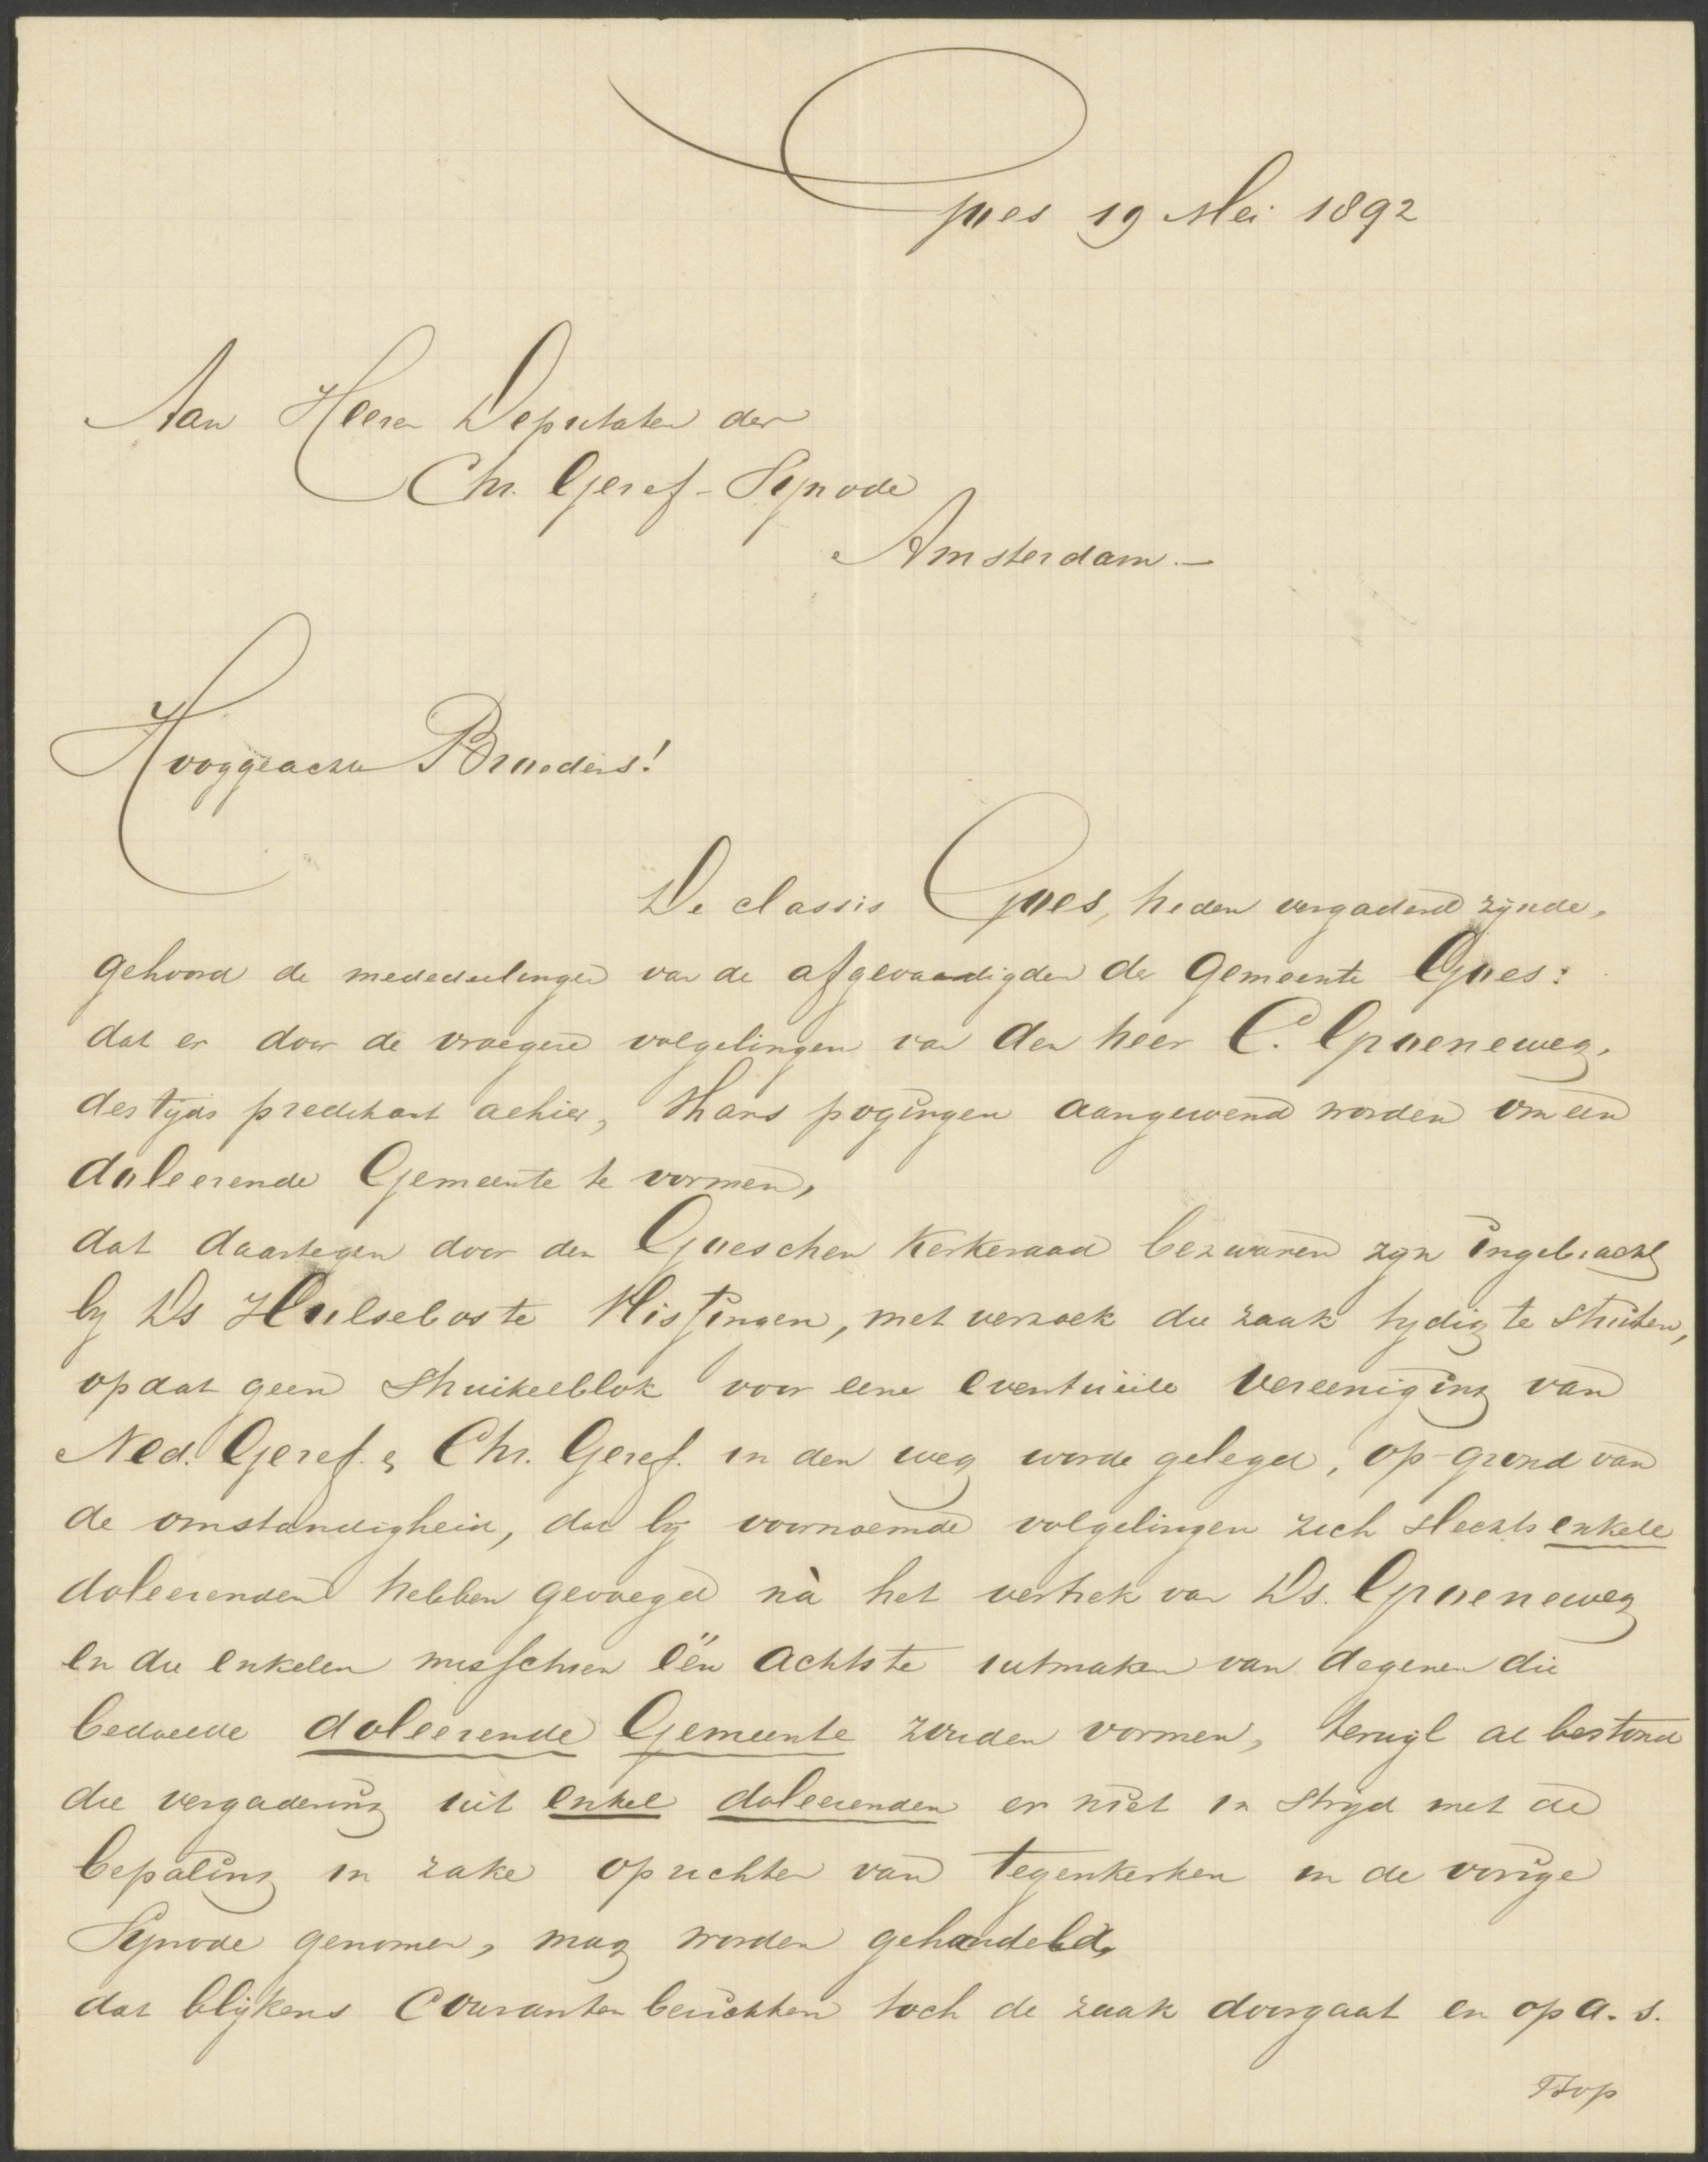 Goes 19 Mei 1892
Aan Heeren Deputaten der
Chr. Geref. Synode
Amsterdam. —
Hooggeachte Broeders!
De classis Goes, heden vergaderd zijnde,
gehoord de mededeelingen van de afgevaardigden der gemeente Goes:
dat er door de vroegere volgelingen van den heer C. Groeneweg,
destijds predikant alhier, thans pogingen aangewend worden om een
doleerende Gemeente te vormen,
dat daartegen door den Goeschen Kerkeraad bezwaren zijn ingebracht
by Ds Hulsebos te Vlissingen, met verzoek die zaak tydig te stuiten,
opdat geen struikelblok voor eene eventuëele vereeniging van
Ned. Geref. & Chr. Geref. in den weg worde gelegd, op grond van
de omstandigheid, dat by voornoemde volgelingen zich slechts enkele
doleerenden hebben gevoegd nà het vertrek van Ds. Groeneweg
en die enkelen misschien één achtste uitmaken van degenen die
bedoelde doleerende Gemeente zouden vormen, terwijl al bestond
die vergadering uit enkel doleerenden er niet in strijd met de
bepaling in zake oprichten van tegenkerken in de vorige
Synode genomen, mag worden gehandeld,
dat blijkens Couranten berichten toch de zaak doorgaat en op a. s.